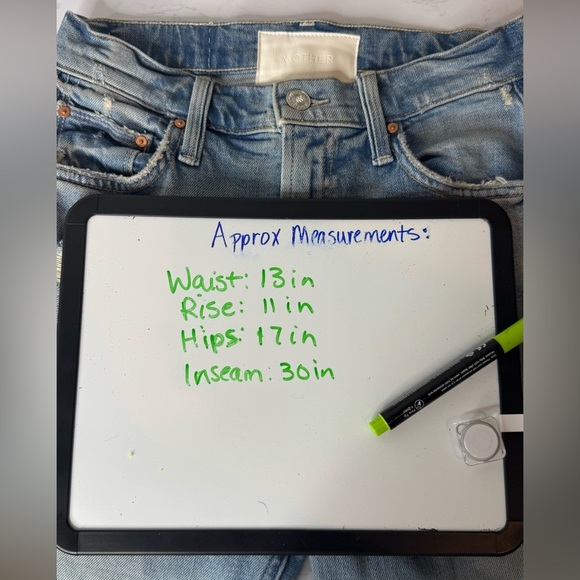 MOTHER
Approx Measurements:
Waist: 13in
Rise: 11in
Hips: 17in
Inseam: 30in